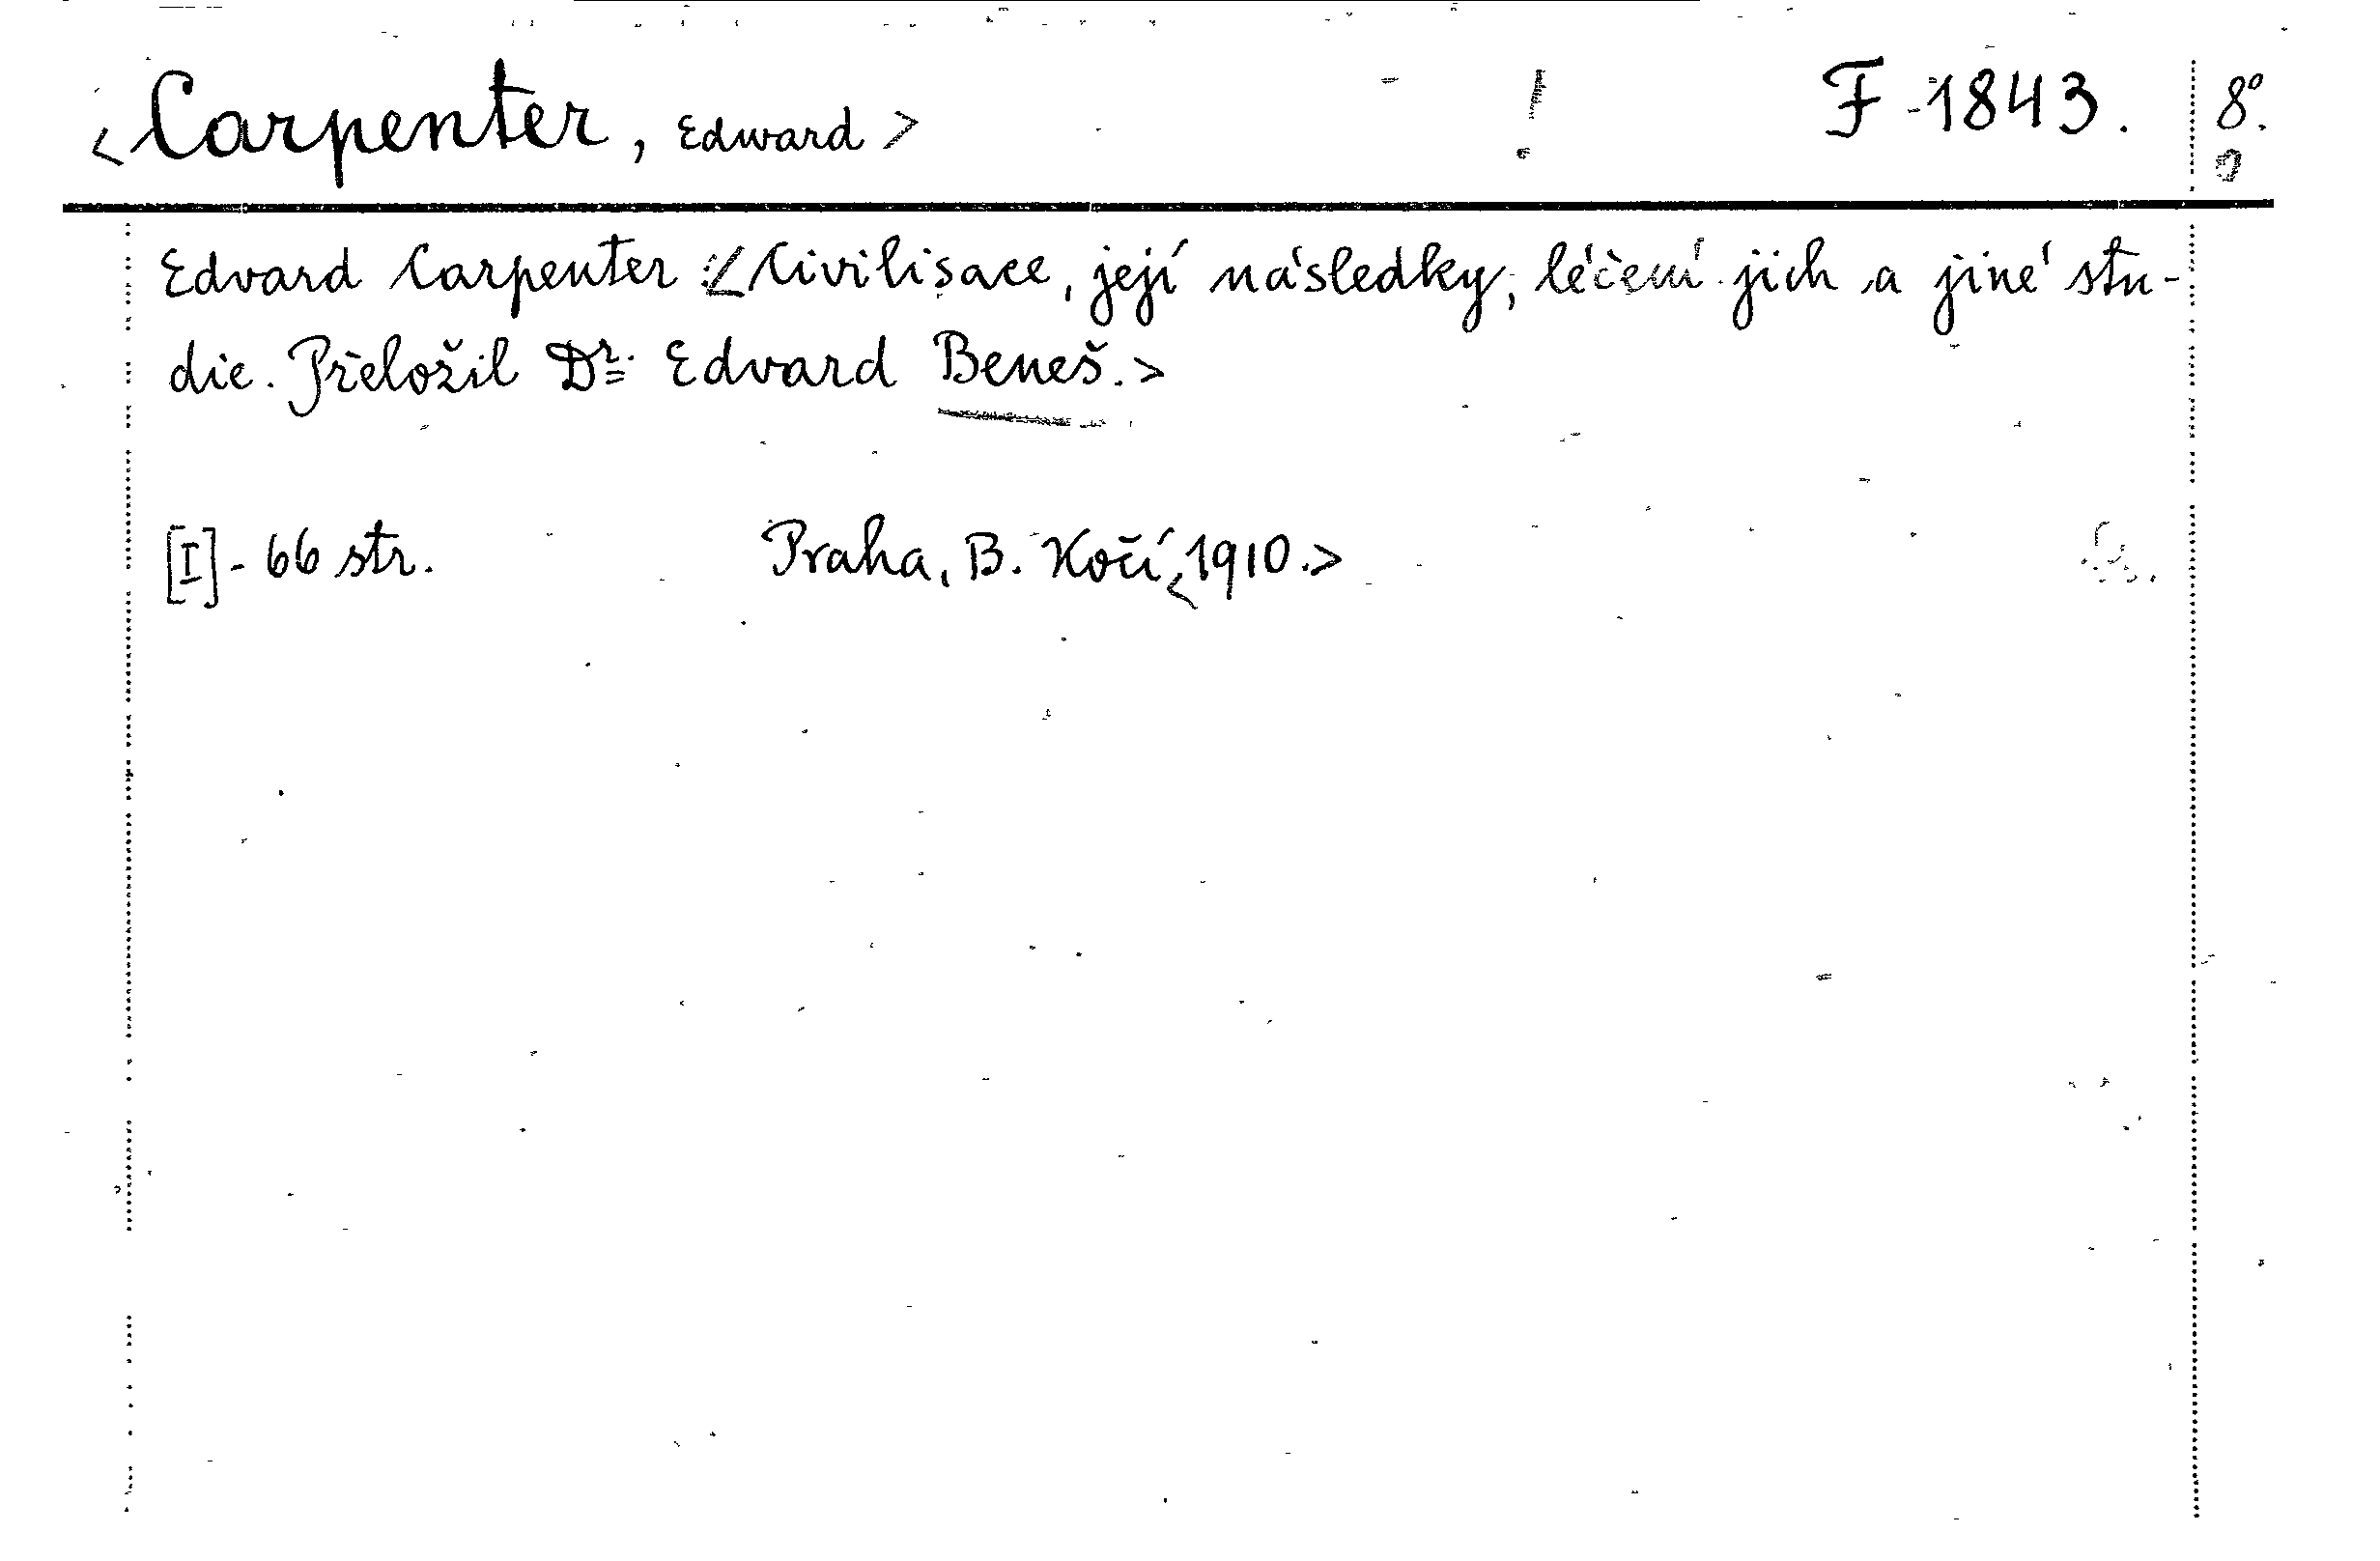 <Carpenter, Edward> ! F 1843. 8°.
Edvard Carpenter: <Civilisace, její následky, léčení jich a jiné stu-
die. Přeložil Dr. Edvard Beneš.>
[I]-66 str. Praha, B. Kočí, <1910.>